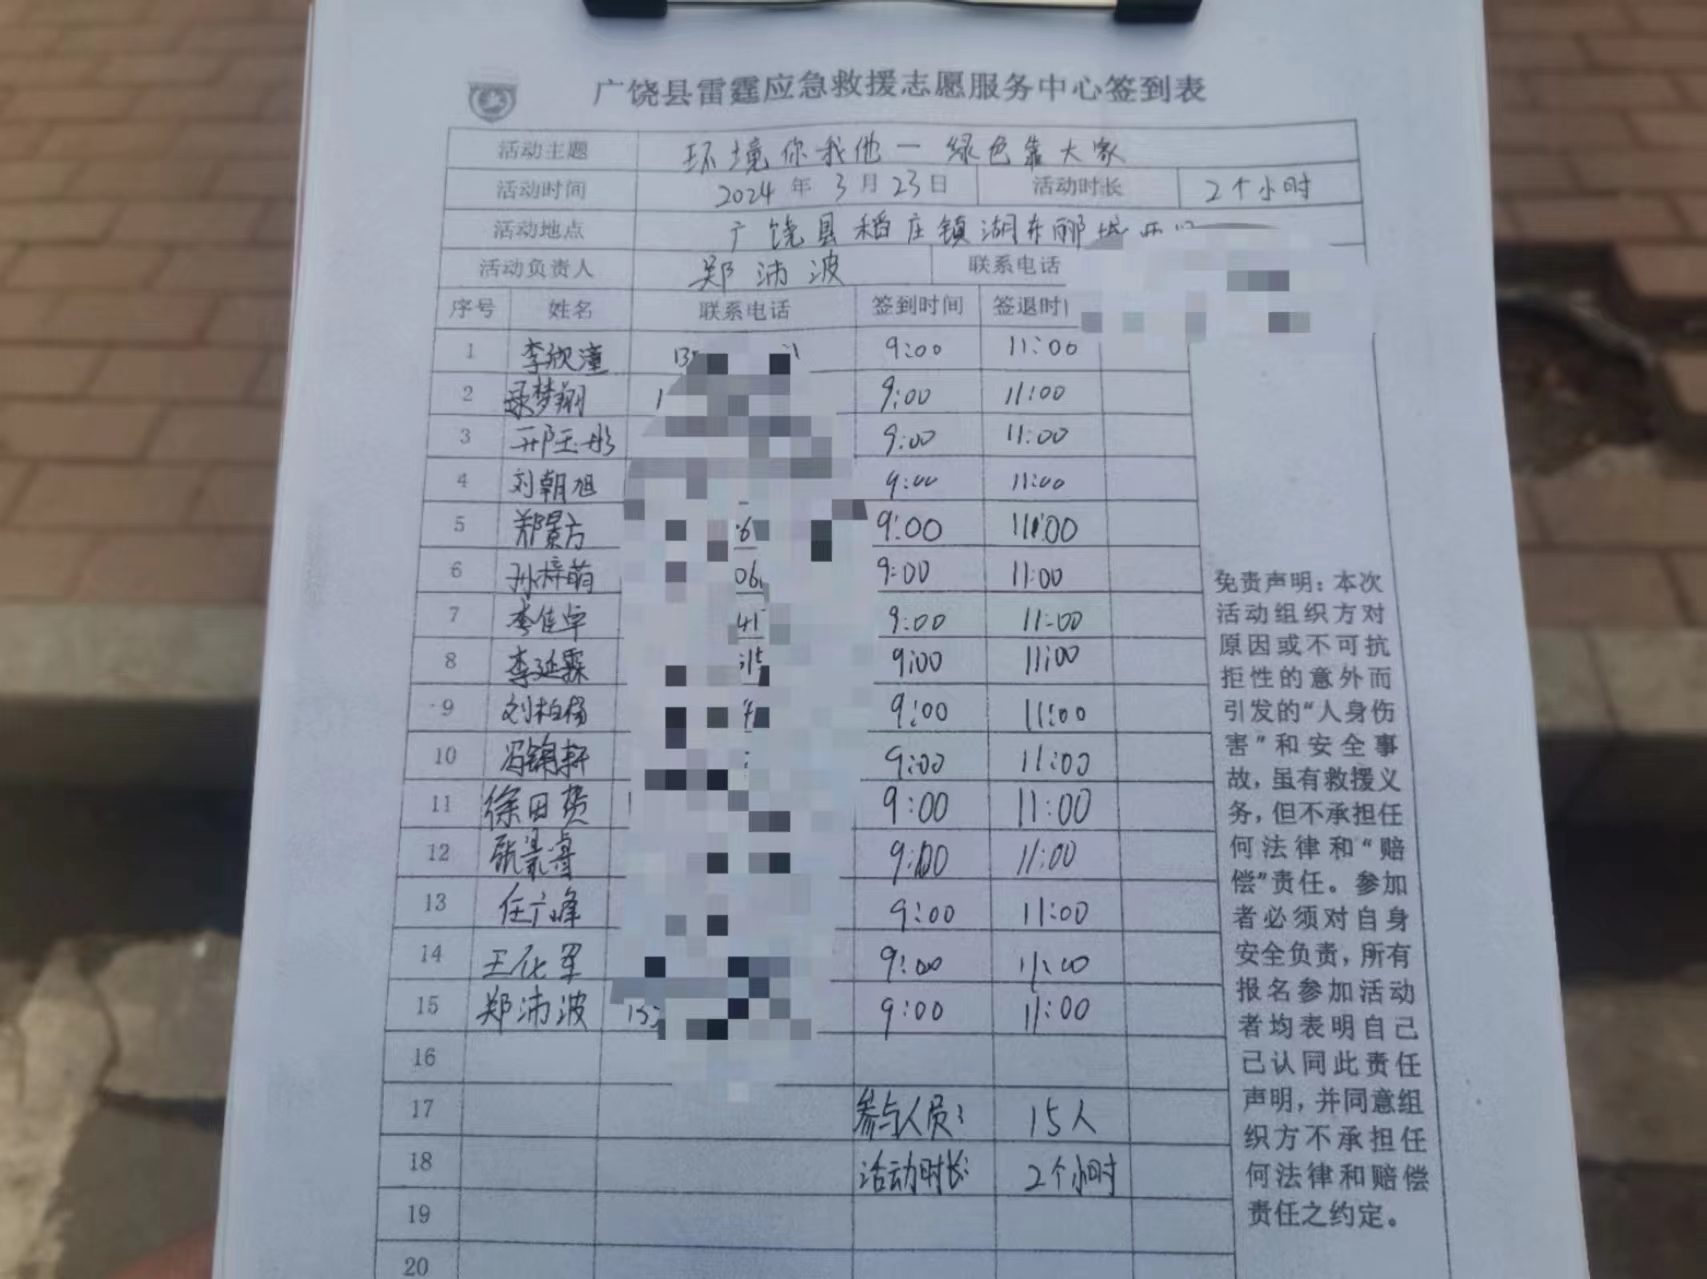 广饶县雷霆应急救援志愿服务中心签到表
活动主题 环境你我他一绿色靠大家
活动时间 2024年3月23日 活动时长 2个小时
活动地点 广饶县稻庄镇湖东郦城
活动负责人 郑沛波 联系电话
序号 姓名 联系电话 签到时间 签退时
1 李欣潼 9:00 11:00
2 梦翔 9:00 11:00
3 邢玉彤 9:00 11:00
4 刘朝旭 9:00 11:00
5 郑景方 9:00 11:00
6 孙梓萌 06 9:00 11:00
7 李佳卓 41 9:00 11:00
8 李延霖 9:00 11:00
9 刘柏杨 9:00 11:00
10 冯锦轩 9:00 11:00
11 徐田 9:00 11:00
12 9:00 11:00
13 任广峰 9:00 11:00
14 王化军 9:00 11:00
15 郑沛波 9:00 11:00
16
17 参与人员: 15人
18 活动时长: 2个小时
19
20
免责声明：本次
活动组织方对
原因或不可抗
拒性的意外而
引发的“人身伤
害”和安全事
故，虽有救援义
务，但不承担任
何法律和“赔
偿”责任。参加
者必须对自身
安全负责，所有
报名参加活动
者均表明自己
已认同此责任
声明，并同意组
织方不承担任
何法律和赔偿
责任之约定。